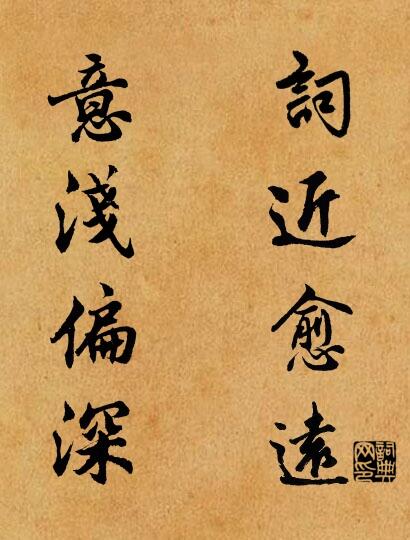 詞近愈遠
意淺偏深
詞典网印